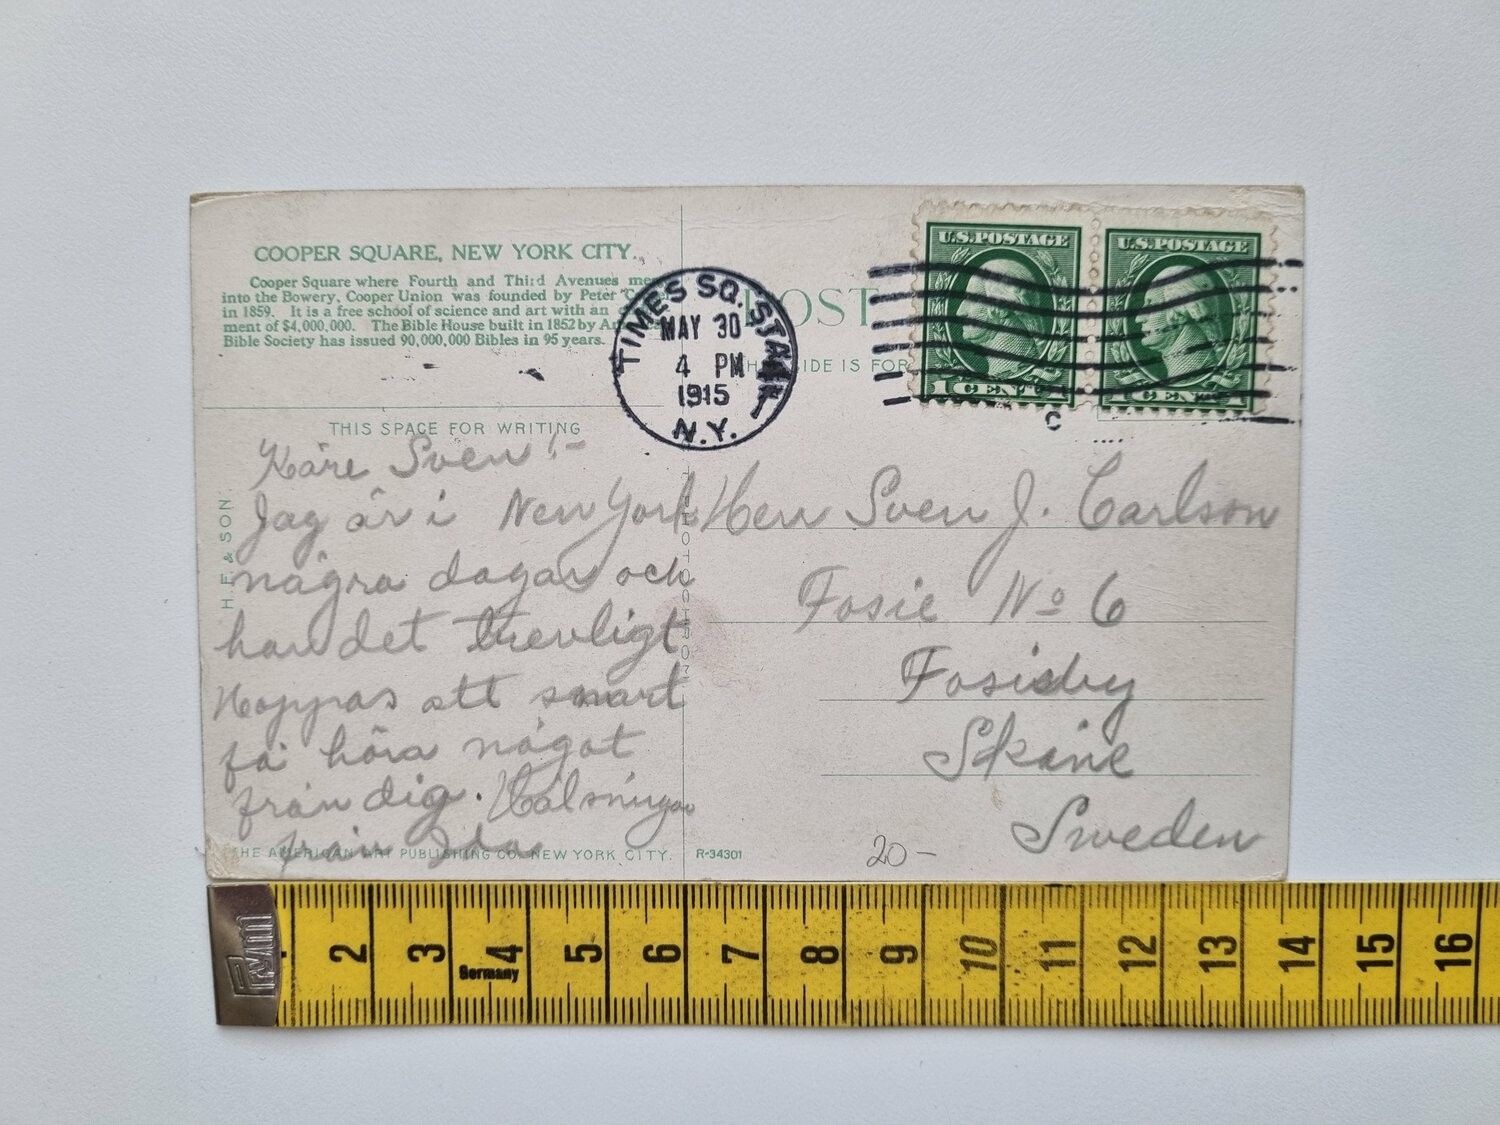 COOPER SQUARE, NEW YORK CITY.
Cooper Square where Fourth and Third Avenues
into the Bowery. Cooper Union was founded by Peter
in 1859. It is a free school of science and art with an
ment of $4,000,000. The Bible House built in 1852 by
Bible Society has issued 90,000,000 Bibles in 95 years.
TIMES SQ. STA.
MAY 30
4 PM
1915
N.Y.
POST
SIDE IS FOR
U.S. POSTAGE
1 CENT
U.S. POSTAGE
1 CENT
C
THIS SPACE FOR WRITING
Käre Sven!-
Jag är i New York
några dagar och
har det trevligt
Hoppas att snart
få höra något
från dig. Hälsningar
från Ida
Herr Sven J. Carlson
Fosie No 6
Fosieby
Skåne
Sweden
H. F. & SON.
PHOTOCHROM
THE AMERICAN ART PUBLISHING CO. NEW YORK CITY.
R-34301
20-
Prym
Germany
2 3 4 5 6 7 8 9 10 11 12 13 14 15 16